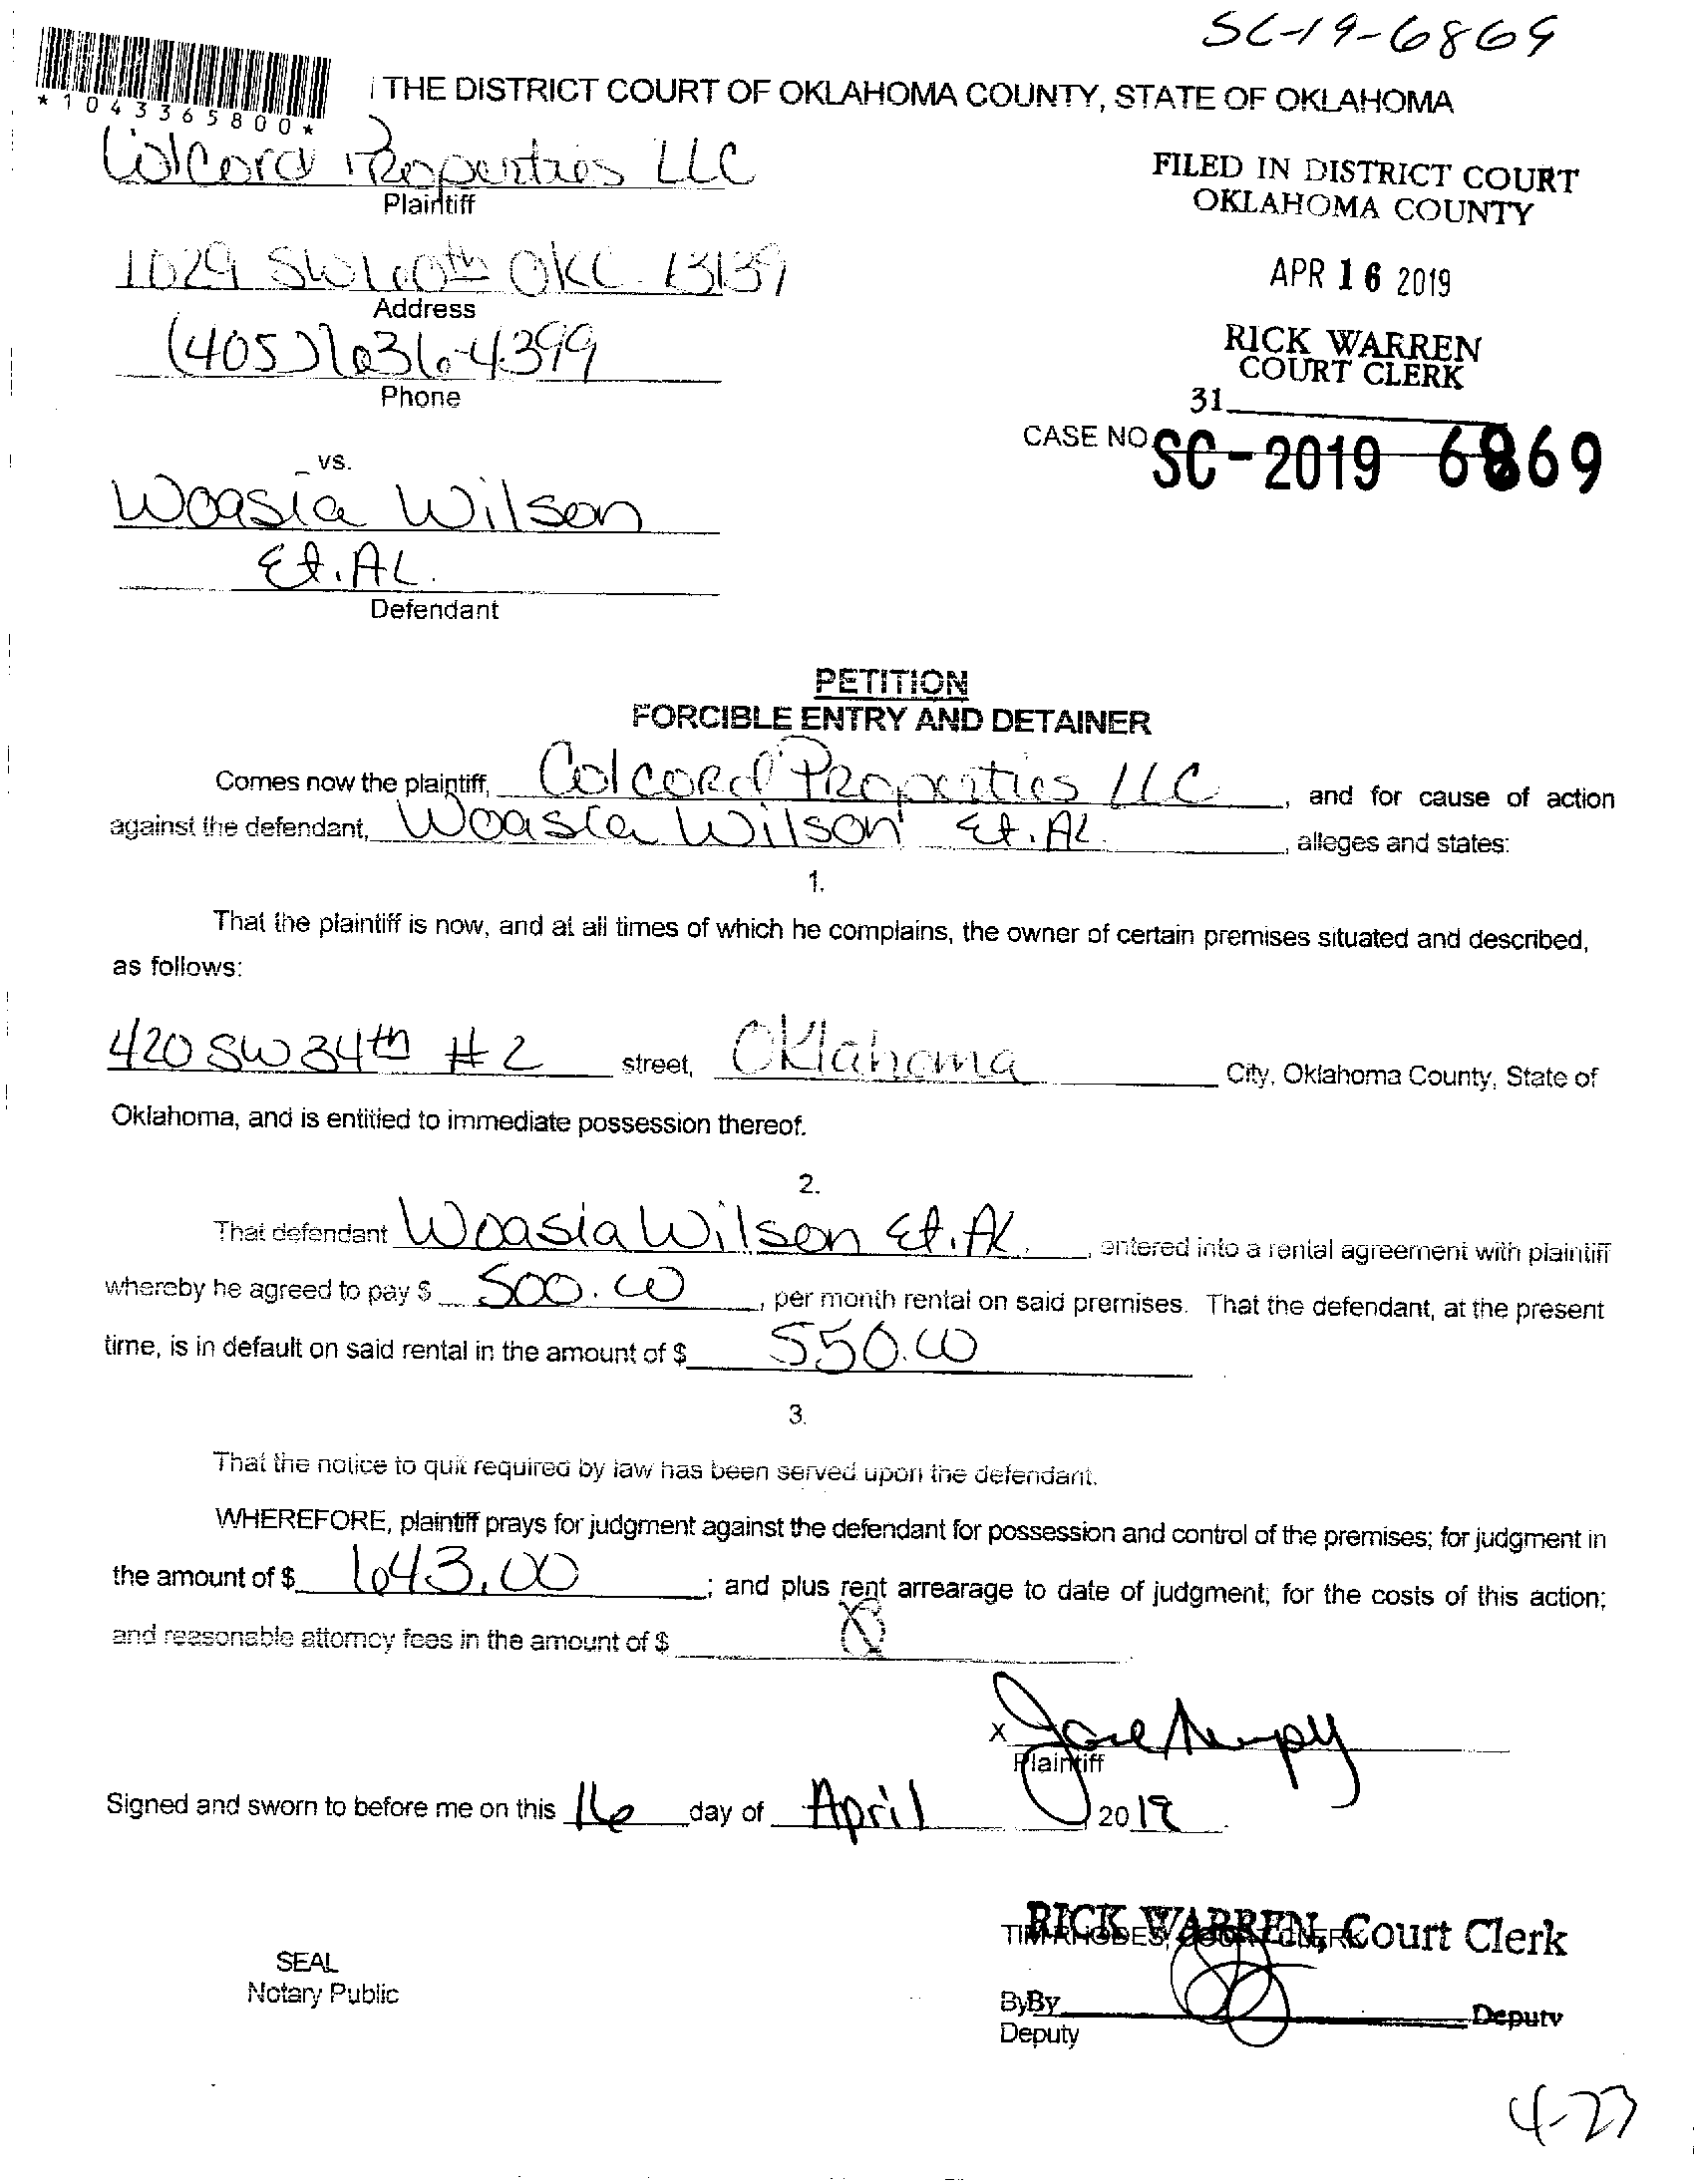 SC-19-6869
*1043365800*
THE DISTRICT COURT OF OKLAHOMA COUNTY, STATE OF OKLAHOMA
Colcord Properties LLC
Plaintiff
FILED IN DISTRICT COURT
OKLAHOMA COUNTY
1029 SW 60th OKC. 73139
Address
APR 16 2019
(405) 636-4399
Phone
RICK WARREN
COURT CLERK
31
CASE NO. SC-2019 6869
vs.
Woasia Wilson
Et. AL.
Defendant
PETITION
FORCIBLE ENTRY AND DETAINER
Comes now the plaintiff, Colcord Properties LLC, and for cause of action
against the defendant, Woasia Wilson Et. AL., alleges and states:
1.
That the plaintiff is now, and at all times of which he complains, the owner of certain premises situated and described,
as follows:
420 SW 34th #2 street, Oklahoma City, Oklahoma County, State of
Oklahoma, and is entitled to immediate possession thereof.
2.
That defendant Woasia Wilson Et. AL., entered into a rental agreement with plaintiff
whereby he agreed to pay $ 500.00, per month rental on said premises. That the defendant, at the present
time, is in default on said rental in the amount of $ 550.00
3.
That the notice to quit required by law has been served upon the defendant.
WHEREFORE, plaintiff prays for judgment against the defendant for possession and control of the premises; for judgment in
the amount of $ 643.00; and plus rent arrearage to date of judgment; for the costs of this action;
and reasonable attorney fees in the amount of $
X
Plaintiff
Signed and sworn to before me on this 16 day of April, 2019
RICK WARREN, Court Clerk
TIM RHODES, COURT CLERK
SEAL
Notary Public
By By Deputy
Deputy
4-23